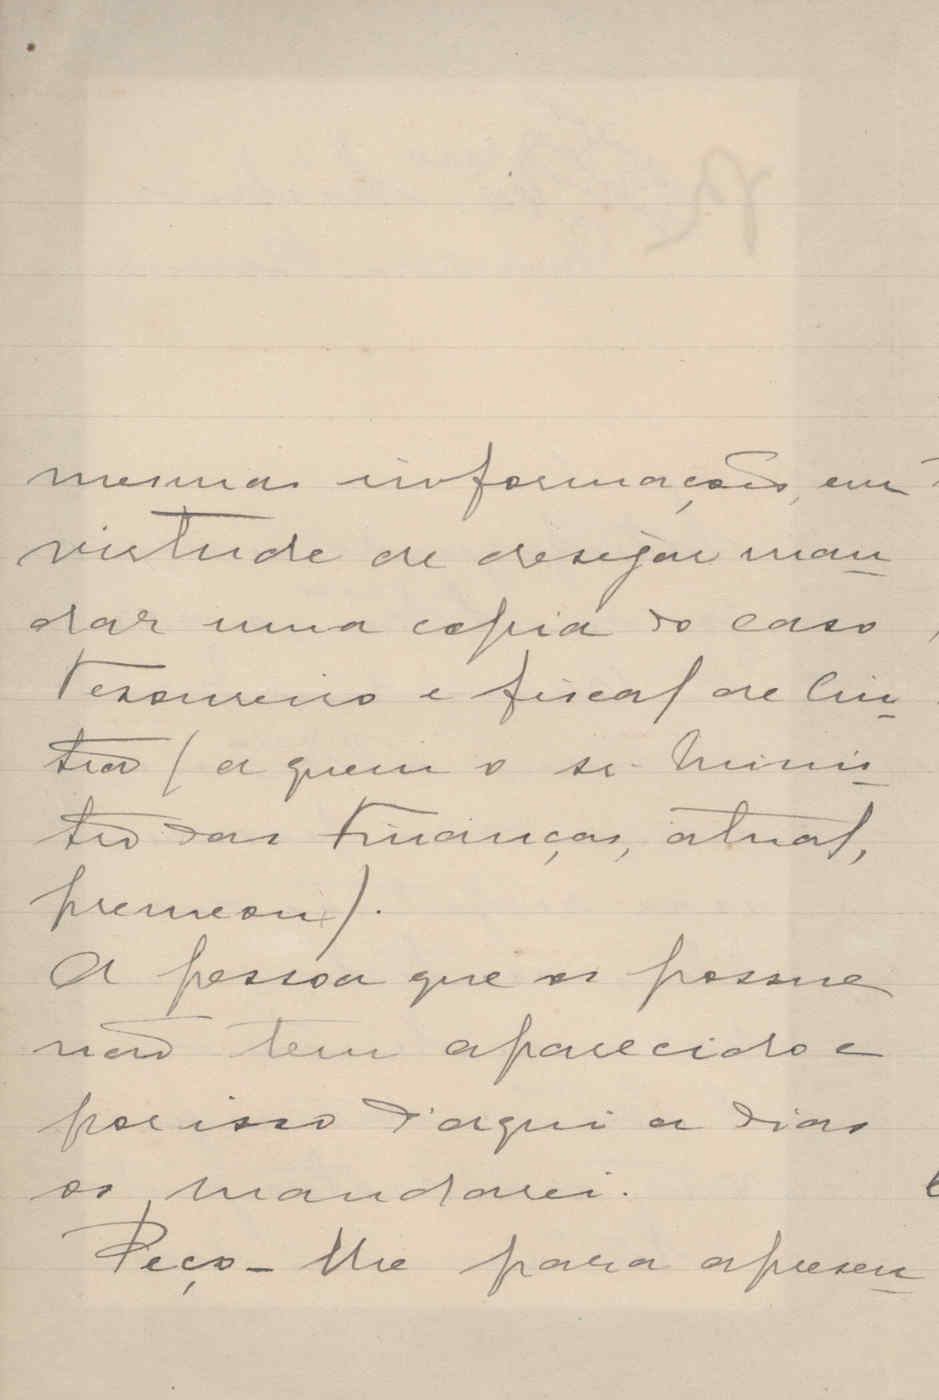 mesmas informações, em
virtude de desejar man
dar uma copia do caso
Tesoureiro e fiscal de Cin
tra (a quem o sr. Minis
tro das Finanças, atual,
premeou).
A pessoa que os possue
não tem aparecido e
por isso d'aqui a dias
os mandarei.
Peço-lhe para apresen